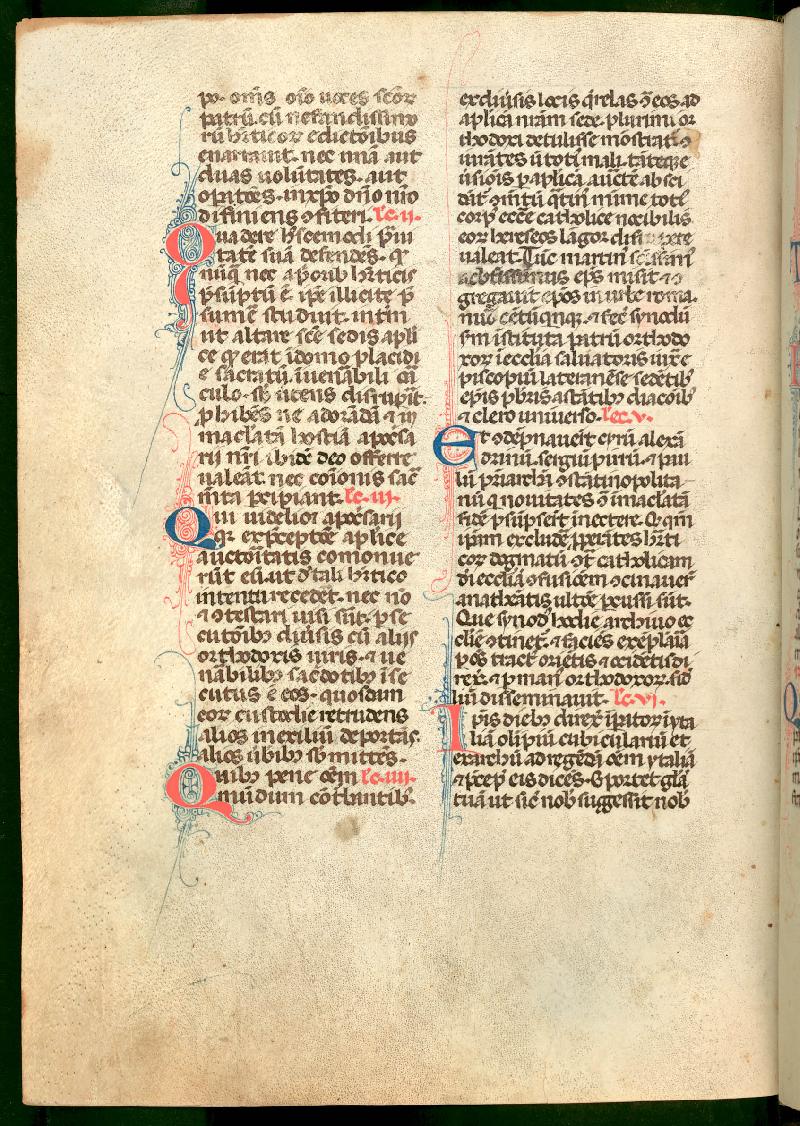 po. om̄s oīo uoces sc̄oꝝ
patrū. cū nefandissimo
rū h̄ticoꝝ edictōibus
enarrant. nec unā aut
duas uolūtates. aut
opatōes. in xp̄o dn̄o nr̄o
difiniens ꝯfiteri. lc. ij.
Qua de re h̄scemodi ꝑui
tatē suā defendēs. qͩ
nūqͣ nec a pͥorib h̄ticis
p̄sūptū ē. ip̄e illicite p̄
sumē studuit. intm
ut altare sc̄e sedis apli
ce qͩ erat ī domo placidi
e sacratū. ī uenābili oͣ
culo. sb̓ uertens disrupit.
ꝓhibēs ne adorādā ⁊ in
maclatā hostiā apoc̄sa
rii nr̄i ibidē deo offerre
ualeāt. nec cōīonis sac̄
mīta pcipiant. lc. iij.
Qui uidelict apoc̄sarij
qꝛ ex pͬceptōe aplice
auctoritatis comonue
rūt eū. ut d̓ tali h̄tico
intentu recedet. nec nō
⁊ ꝯtestari uisi sūt. ꝑse
cutōibꝫ diuīsis cū alijs
orthodoxis uiris. ⁊ ue
nābilibꝫ sac̄dotibꝫ īse
cutus ē eos. quosdam
eoꝝ custodie retrudens
alios in exiliū deportās.
alios ūbibꝫ sb̓ mittēs.
Quibꝫ pene oēm lc. iiij.
mūdum cōtbantibꝫ.
ex diuīsis locis qͬrelas ꝯ̄ eos ad
aplicā nr̄am sedē. plurimi or
thodoxi detulisse mōstratꝰ
iurātes ū toti mali. tāteqꝫ
ūsiōis ꝑ aplicā aucͭtē absci
dāt̉. qͣtinꝰ nūnc toti
corpͥ eccͥe catholice nocibilis
eoꝝ hereseos lāgoꝝ
ualeat. Tūc martinꝰ
eps misit ⁊ ꝯ
gregauit ep̄os in urbe roma.
nūo cētū qͥnqꝫ. ⁊ fec̄ synodū
sm īstituta patrū orthodo
xoꝝ ī ecc̄lia saluatoris iuxͣ e
piscopiū lateranēse. sedētib
ep̄is. p̄bris. astātibꝫ diacōibꝫ
⁊ clero uniuerso. lec. v.
Et ꝯdēpnauert̄ cyrū alexā
drinū. sergiū pirrū. ⁊ pau
lū pͬiarchā ꝯstātinopolita
nū. qͥ nouitates ꝯ̄ īmaclatā
fidē p̄sūpsert̄ inectere.
ip̄am excludē ꝑperātes h̄ti
coꝝ dogmatū ꝯͣ catholicam
di ecc̄liā ꝯfusiōem ꝯcinauerͭ
anathēatis ultōe ꝑcussi sūt.
Que synodꝰ hodie archiuo ec
clie ꝯtinet̓. ⁊ faciēs exēplaīa
ꝑ oēs tractꝰ oriētis ⁊ occidētis di
rexͭ. ⁊ ꝑ manꝰ orthodoxoꝝ fid̓
liū disseminauit. lc. vi.
Ipīs diebꝫ direxͭ īpͣtor ī yta
liā olīpiū cubiculariū et
exarchū ad regēdā oēm ytaliā
⁊ pͬcep̄ eis dicēs. Oportet glā
tuā ut sic̄ nob̓ suggessit nob̓